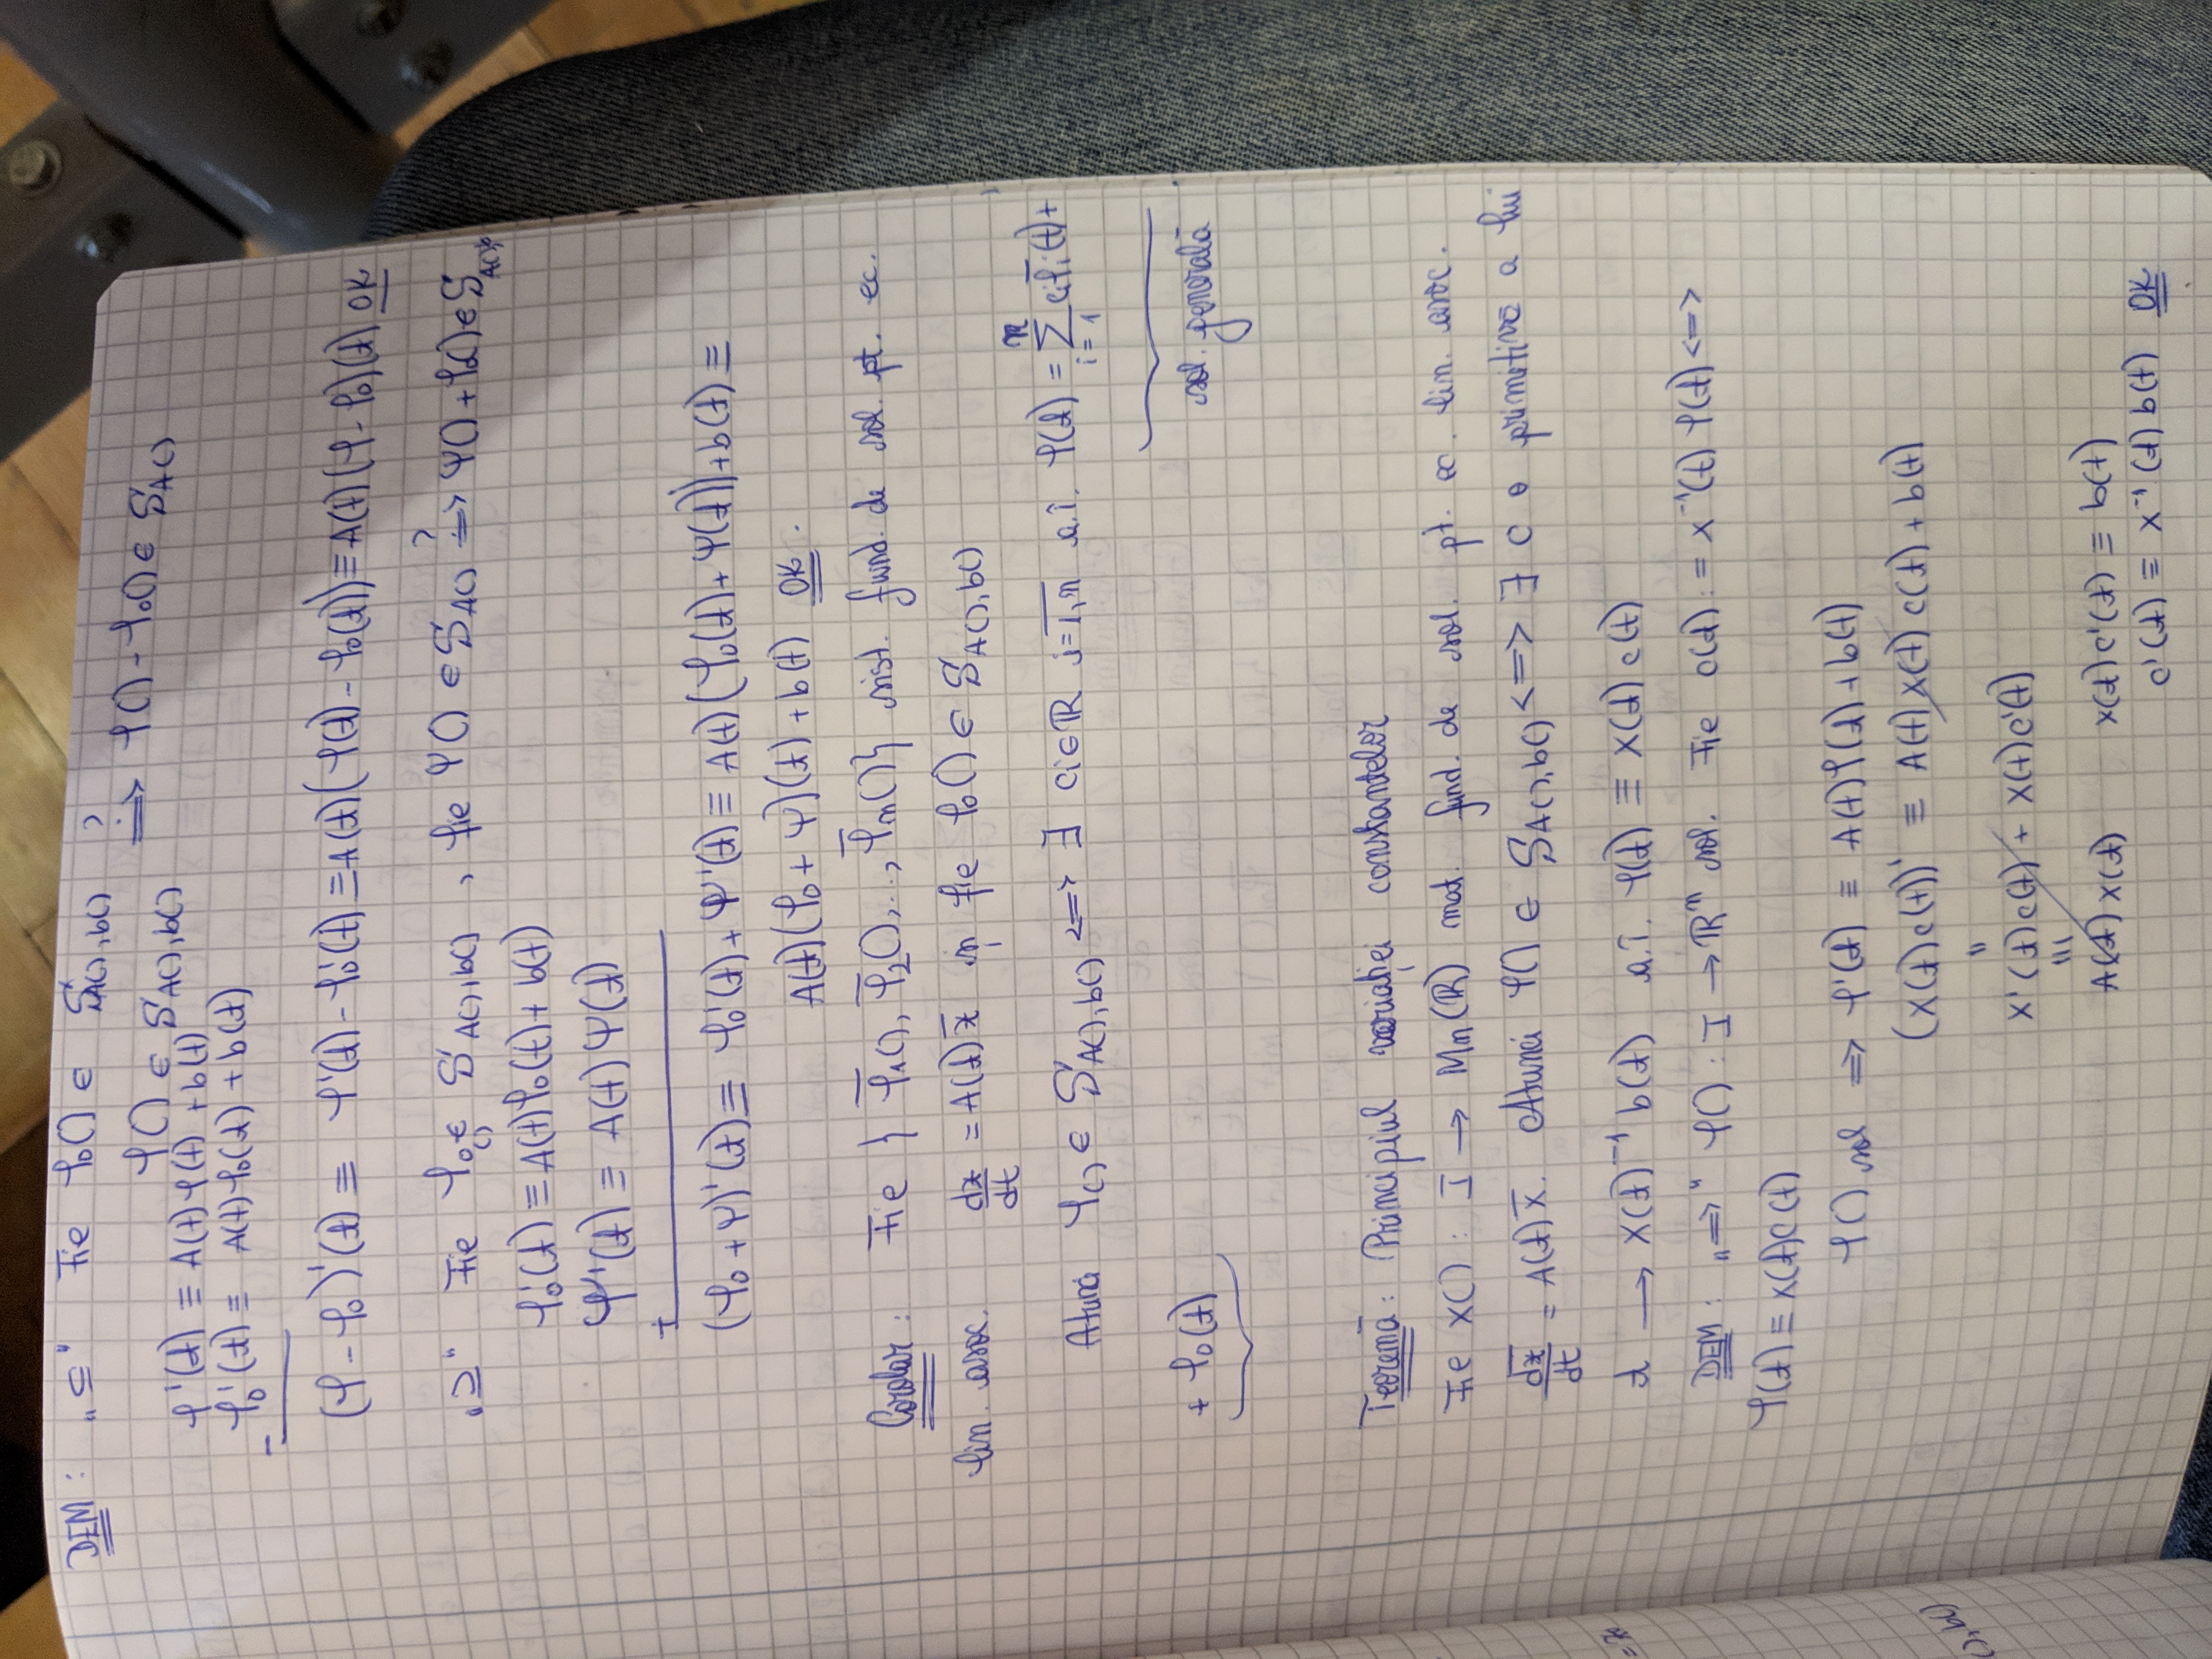 DEM : „⊆" Fie φ₀() ∈ S_{A(),b()}
φ() ∈ S_{A(),b()} ⟹? φ() - φ₀() ∈ S_{A()}
φ'(t) ≡ A(t)φ(t) + b(t)
φ₀'(t) ≡ A(t)φ₀(t) + b(t)
−
(φ - φ₀)'(t) ≡ φ'(t) - φ₀'(t) ≡ A(t)(φ(t) - φ₀(t)) ≡ A(t)(φ - φ₀)(t) OK
„⊇" Fie φ₀() ∈ S_{A(),b()} , fie Ψ() ∈ S_{A()} ⟹? Ψ() + φ₀() ∈ S_{A(),b}
φ₀'(t) ≡ A(t)φ₀(t) + b(t)
Ψ'(t) ≡ A(t)Ψ(t)
+
(φ₀ + Ψ)'(t) ≡ φ₀'(t) + Ψ'(t) ≡ A(t)(φ₀(t) + Ψ(t)) + b(t) ≡
A(t)(φ₀ + Ψ)(t) + b(t) OK .
Corolar : Fie { φ̄₁(), φ̄₂(), ..., φ̄ₙ()} sist. fund. de sol. pt. ec.
lin. asoc. dx/dt = A(t)x̄ și fie φ₀() ∈ S_{A(),b()}
Atunci φ() ∈ S_{A(),b()} <=> ∃ ci∈ℝ i=1,n a.î. φ(t) = Σ_{i=1}^{n} ciφ̄i(t) +
+ φ₀(t)
sol. generală
Teoremă : Principiul variației constantelor
Fie X() : I → Mn(ℝ) mat. fund. de sol. pt. ec. lin. asoc.
dx̄/dt = A(t)x̄. Atunci φ() ∈ S_{A(),b()} <=> ∃ c o primitivă a lui
t → X(t)⁻¹ b(t) a.î. φ(t) ≡ X(t) c(t)
DEM : „=>" φ() : I → ℝⁿ sol. Fie c(t) : = X⁻¹(t) φ(t) <=>
φ(t) ≡ X(t)c(t)
φ() sol => φ'(t) ≡ A(t)φ(t) + b(t)
(X(t)c(t))' ≡ A(t)X(t)c(t) + b(t)
"
X'(t)c(t) + X(t)c'(t)
|||
A(t)X(t) X(t)c'(t) ≡ b(t)
c'(t) ≡ X⁻¹(t) b(t) OK
= x₀
(), b()